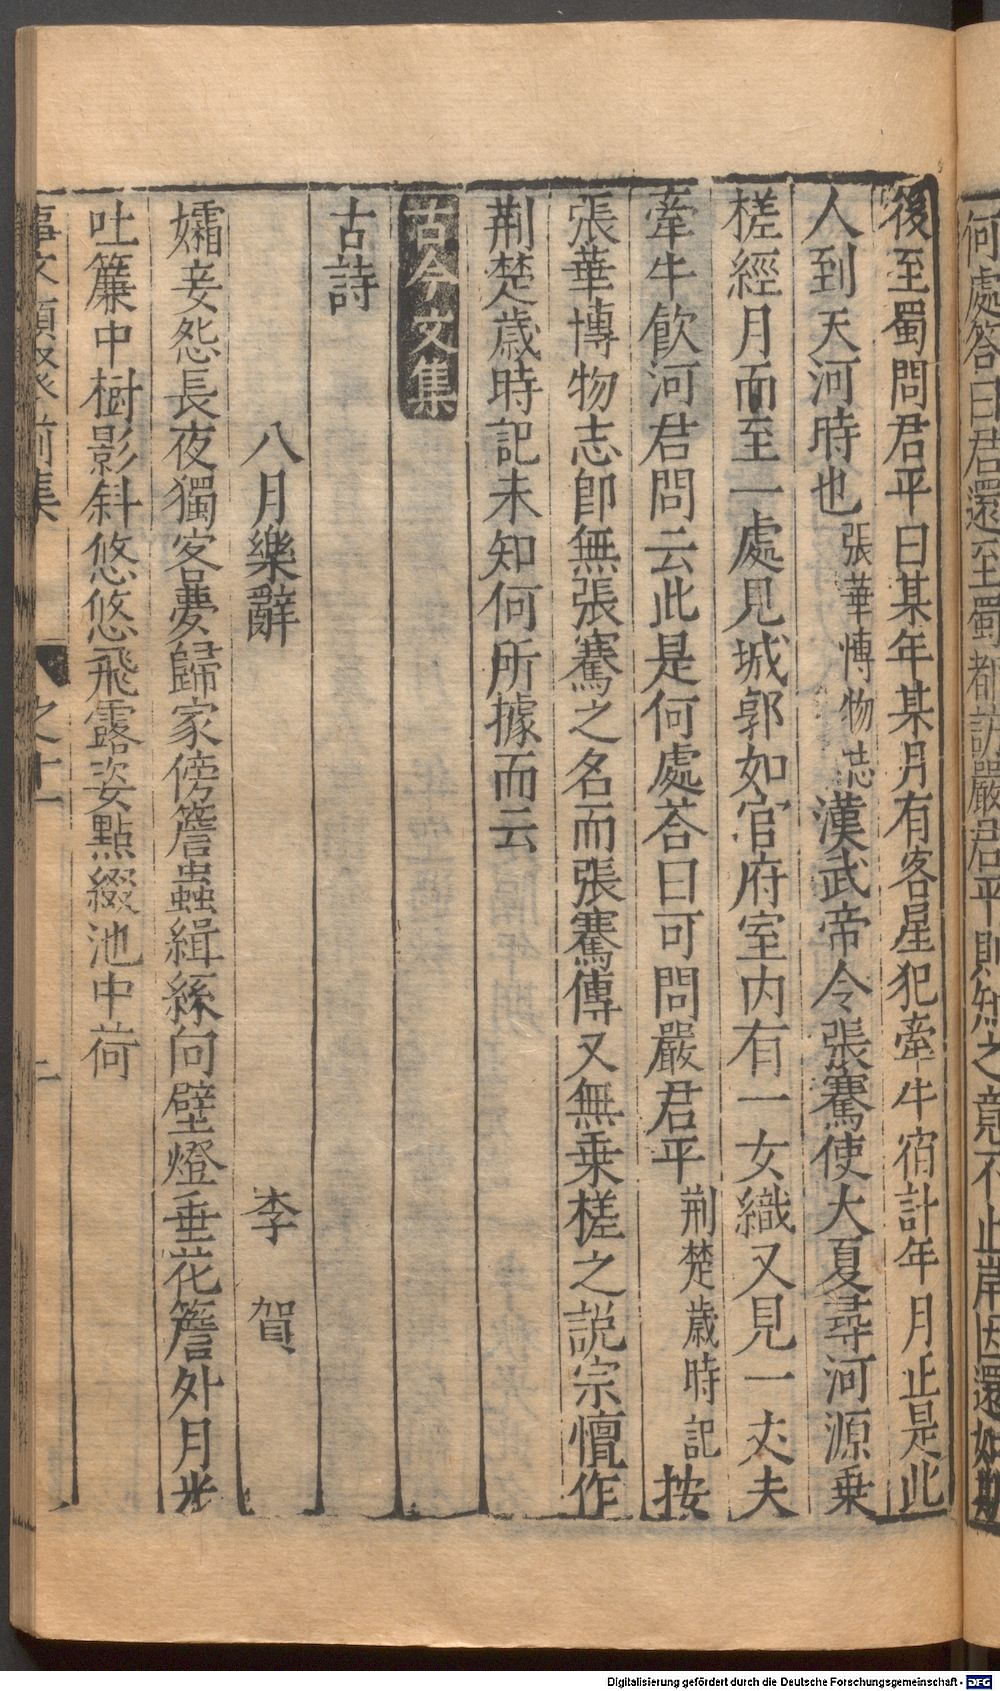 何處答曰君還至蜀都訪嚴君平則知之竟不上岸因還如期
後至蜀問君平曰某年某月有客星犯牽牛宿計年月正是此
人到天河時也張華博物志漢武帝令張騫使大夏尋河源乗
槎經月而至一處見城郭如官府室内有一女織又見一丈夫
牽牛飲河君問云此是何處荅曰可問嚴君平荆楚歲時記按
張華博物志即無張騫之名而張騫傳又無乗槎之説宗懍作
荆楚歲時記未知何所據而云
古今文集
古詩
八月樂辭　李賀
孀妾怨長夜獨客夢歸家傍簷蟲緝絲向壁燈垂花簷外月光
吐簾中樹影斜悠悠飛露姿點綴池中荷
事文類聚前集　之十一　二
Digitalisierung gefördert durch die Deutsche Forschungsgemeinschaft - DFG